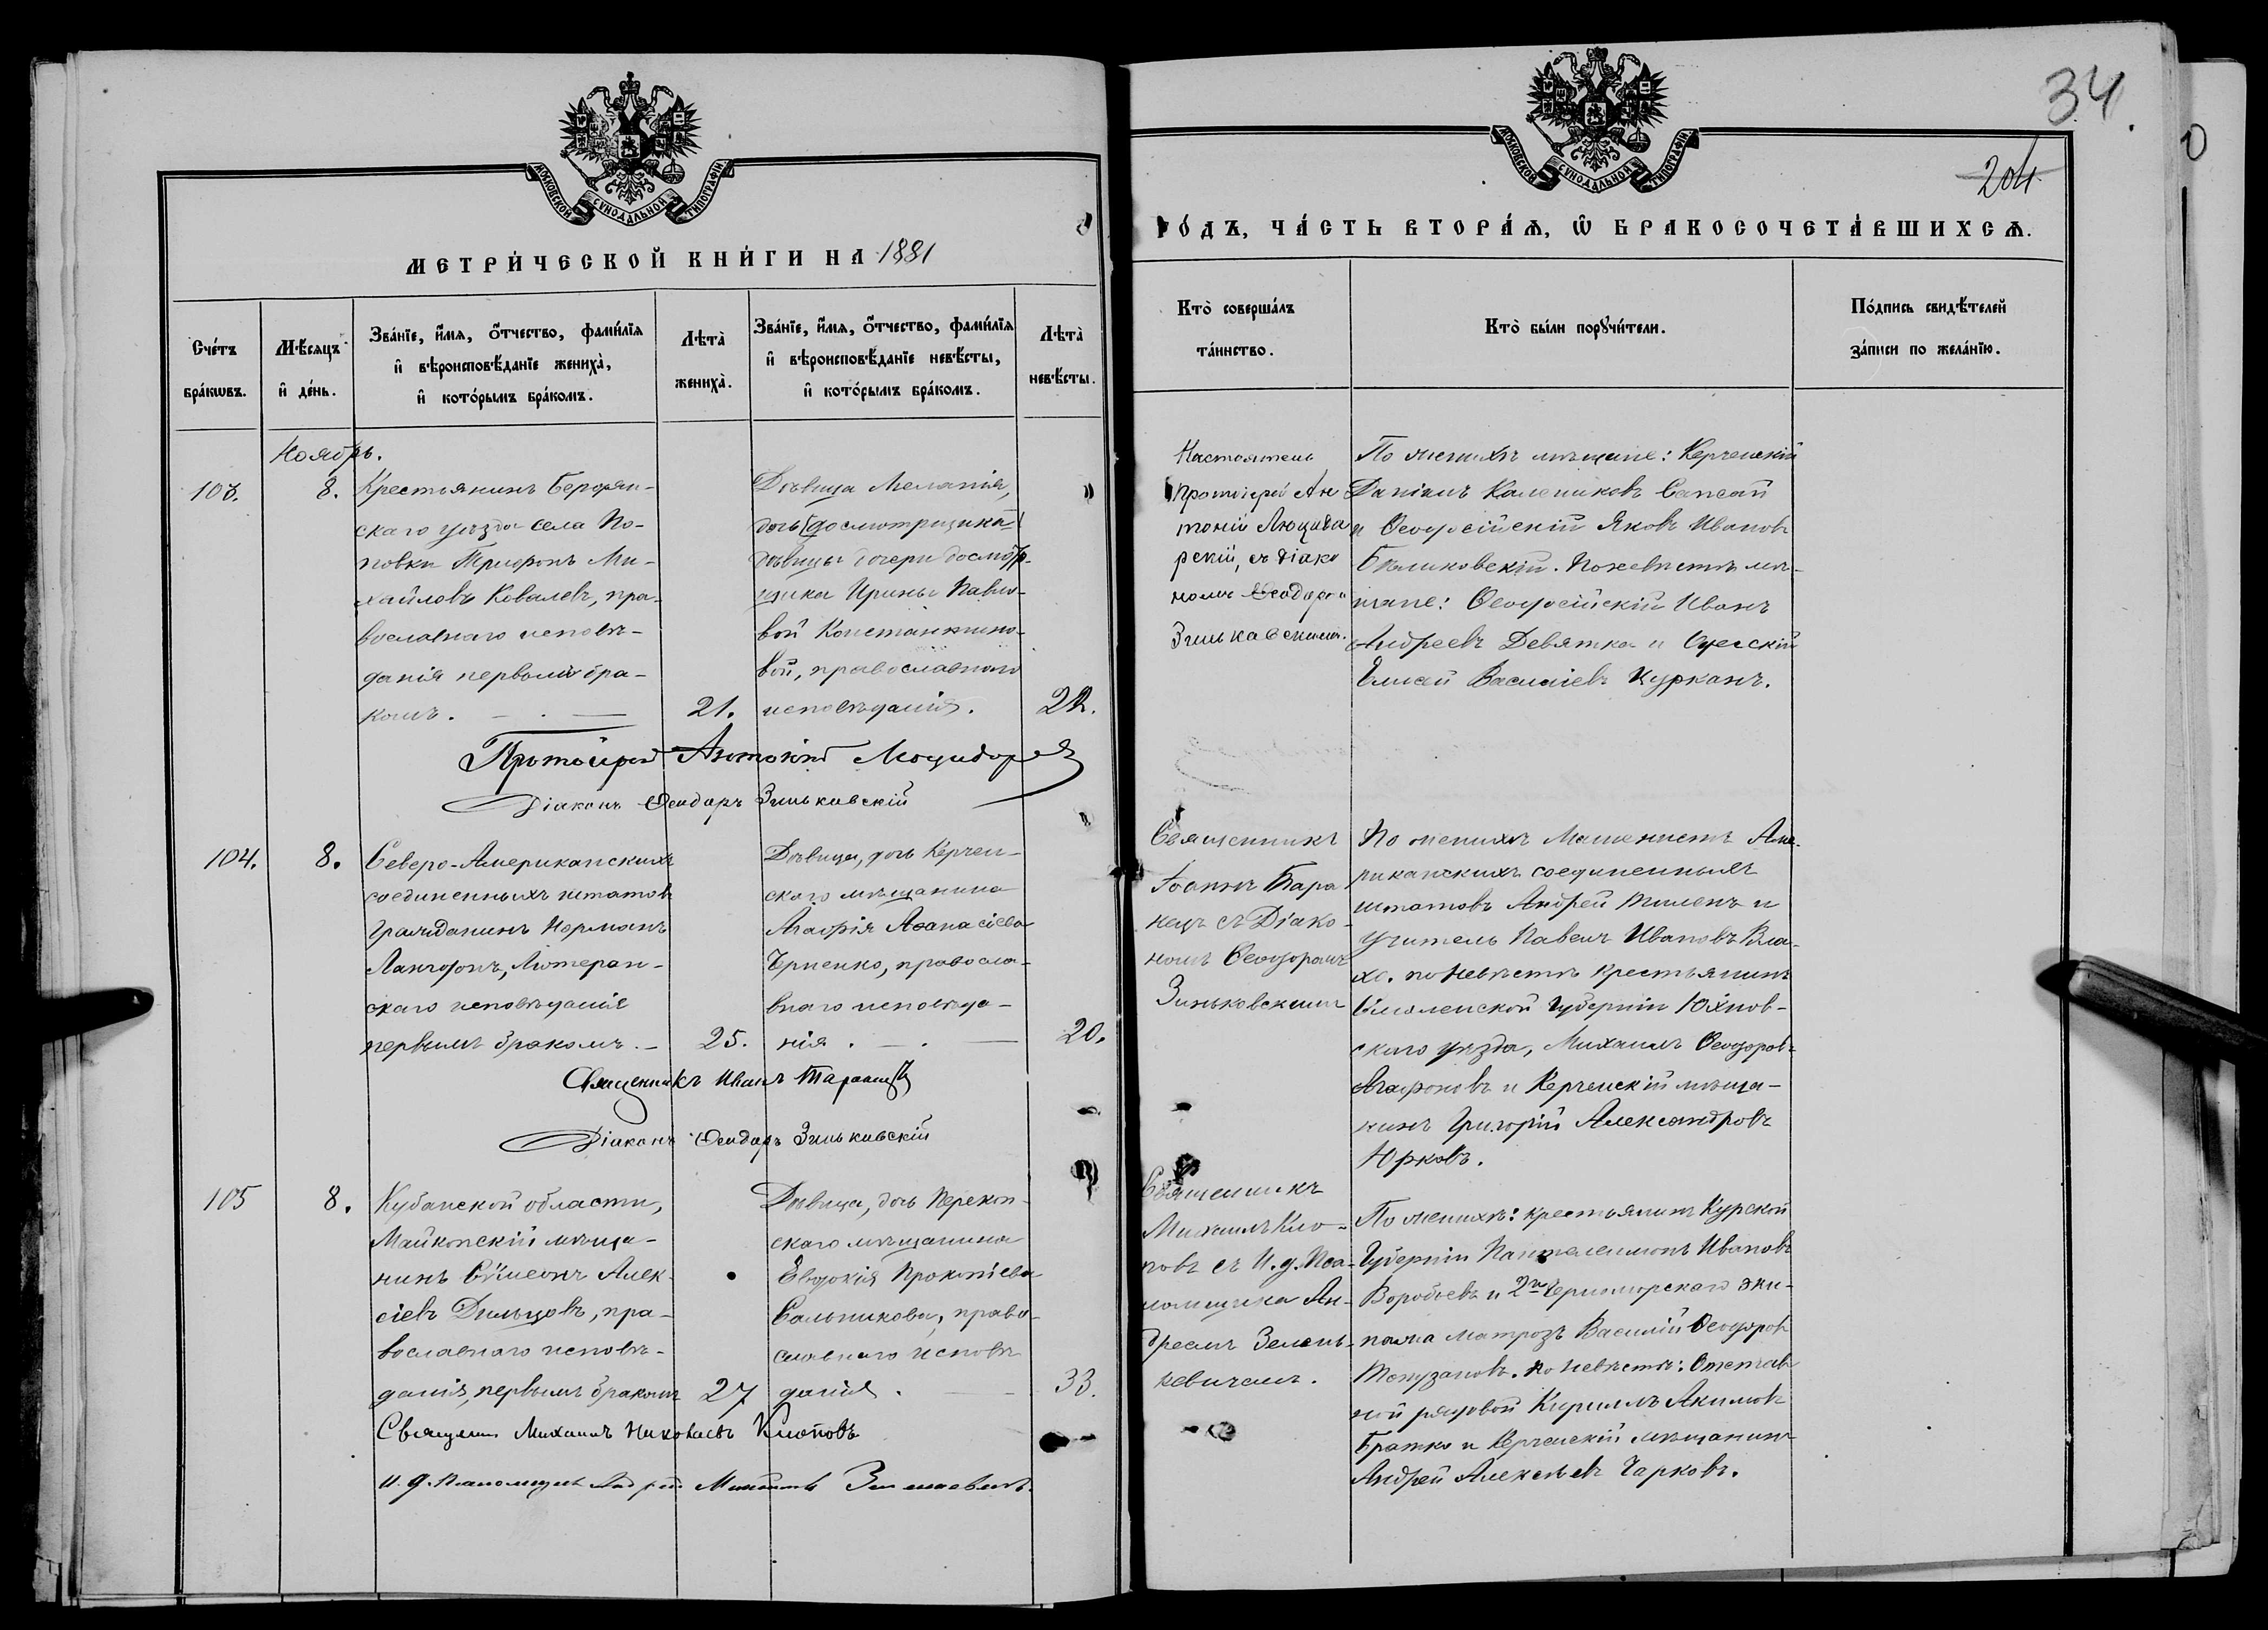 МОСКОВСКОЙ СУНОДАЛЬНОЙ ТИПОГРАФІИ
МЕТРИ́ЧЕСКОЙ КНИ́ГИ НА 1881
Сче́тъ бра́кѡвъ.
Мѣ́сяцъ и҆ де́нь.
Зва́нїе, и҆́мѧ, ѻ҆́тчество, фами́лїѧ
и҆ вѣроисповѣ́данїе жениха̀,
и҆ кото́рымъ бра́комъ.
Лѣта̀ жениха̀.
Зва́нїе, и҆́мѧ, ѻ҆́тчество, фами́лїѧ
и҆ вѣроисповѣ́данїе невѣ́сты,
и҆ кото́рымъ бра́комъ.
Лѣта̀ невѣ́сты.
Ноябрь.
103.
8.
Крестьянинъ Бердян-
скаго уѣзда села По-
повки Трифонъ Ми-
хайловъ Ковалевъ, пра-
вославнаго исповѣ-
данія первымъ бра-
комъ.
21.
Дѣвица Меланія,
дочь (досмотрщика)
дѣвицы дочери досмотр-
щика Ирины Павло-
вой Константино-
вой, православнаго
исповѣданія.
22.
Протоіерей Антоній
Діаконъ Ѳеодоръ Зиньковскій
104.
8.
Северо-Американскихъ
соединенныхъ штатовъ
Гражданинъ Норманъ
Лангфонъ, Лютеран-
скаго исповѣданія
первымъ бракомъ.
25.
Дѣвица, дочь Керчен-
скаго мѣщанина
Агафія Аѳанасіева
Черненко, правосла-
внаго исповѣда-
нія.
20.
Священникъ Иоаннъ
Діаконъ Ѳеодоръ Зиньковскій
105
8.
Кубанской области,
Майкопскій мѣща-
нинъ Сѷмеонъ Алек-
сіевъ Дильцовъ, пра-
вославнаго исповѣ-
данія, первымъ бракомъ
27
Дѣвица, дочь Перекоп-
скаго мѣщанина
Евдокія Прокопіева
Сальникова, право-
славнаго исповѣ
данія.
33.
Священникъ Михаилъ Николаевъ Клоповъ
И. д. Псаломщика Андрей
34.
204
МОСКОВСКОЙ СУНОДАЛЬНОЙ ТИПОГРАФІИ
ГО́ДЪ, ЧА́СТЬ ВТОРА́Ѧ, Ѽ БРАКОСОЧЕТА́ВШИХСѦ.
Кто̀ соверша́лъ та́инство.
Кто̀ бы́ли порꙋчи́тели.
По́дпись свидѣ́телей
за́писи по жела́нїю.
Настоятель
Протоіерей Ан
тоній
рскій, съ діако
номъ Ѳеодоромъ
Зиньковскимъ.
По женихѣ мѣщане: Керченскій
Даніилъ Калениковъ Сапсай
и Ѳеодосійскій Яковъ Ивановъ
По невѣстѣ мѣ-
щане: Ѳеодосійскій Иванъ
Андреевъ Девятка и Одесскій
Елисѣй Василіевъ Курканъ.
Священникъ
Іоаннъ Тара
нецъ съ Діако-
номъ Ѳеодоромъ
Зиньковскимъ
По женихѣ Машинистъ Аме-
риканскихъ соединенныхъ
штатовъ Андрей Тиленъ и
Учитель Павелъ Ивановъ Вла-
хо. по невѣстѣ крестьянинъ
Смоленской Губерніи Юхнов-
скаго уѣзда, Михаилъ Ѳеодоровъ
Агафоновъ и Керченскій мѣща-
нинъ Григорій Александровъ
Юрковъ.
Священникъ
Михаилъ Кло-
повъ съ И. д. Пса-
ломщика Ан-
дреемъ Зелень-
кевичемъ.
По женихѣ: крестьянинъ Курской
Губерніи Пантелеимонъ Ивановъ
Воробьевъ и 2го Черноморскаго эки-
пажа матрозъ Василій Ѳеодоровъ
Топузановъ. по невѣстѣ: Отстав-
ной рядовой Кириллъ Акимовъ
Братко и Керченскій мѣщанинъ
Андрей Алексѣевъ Чарковъ.